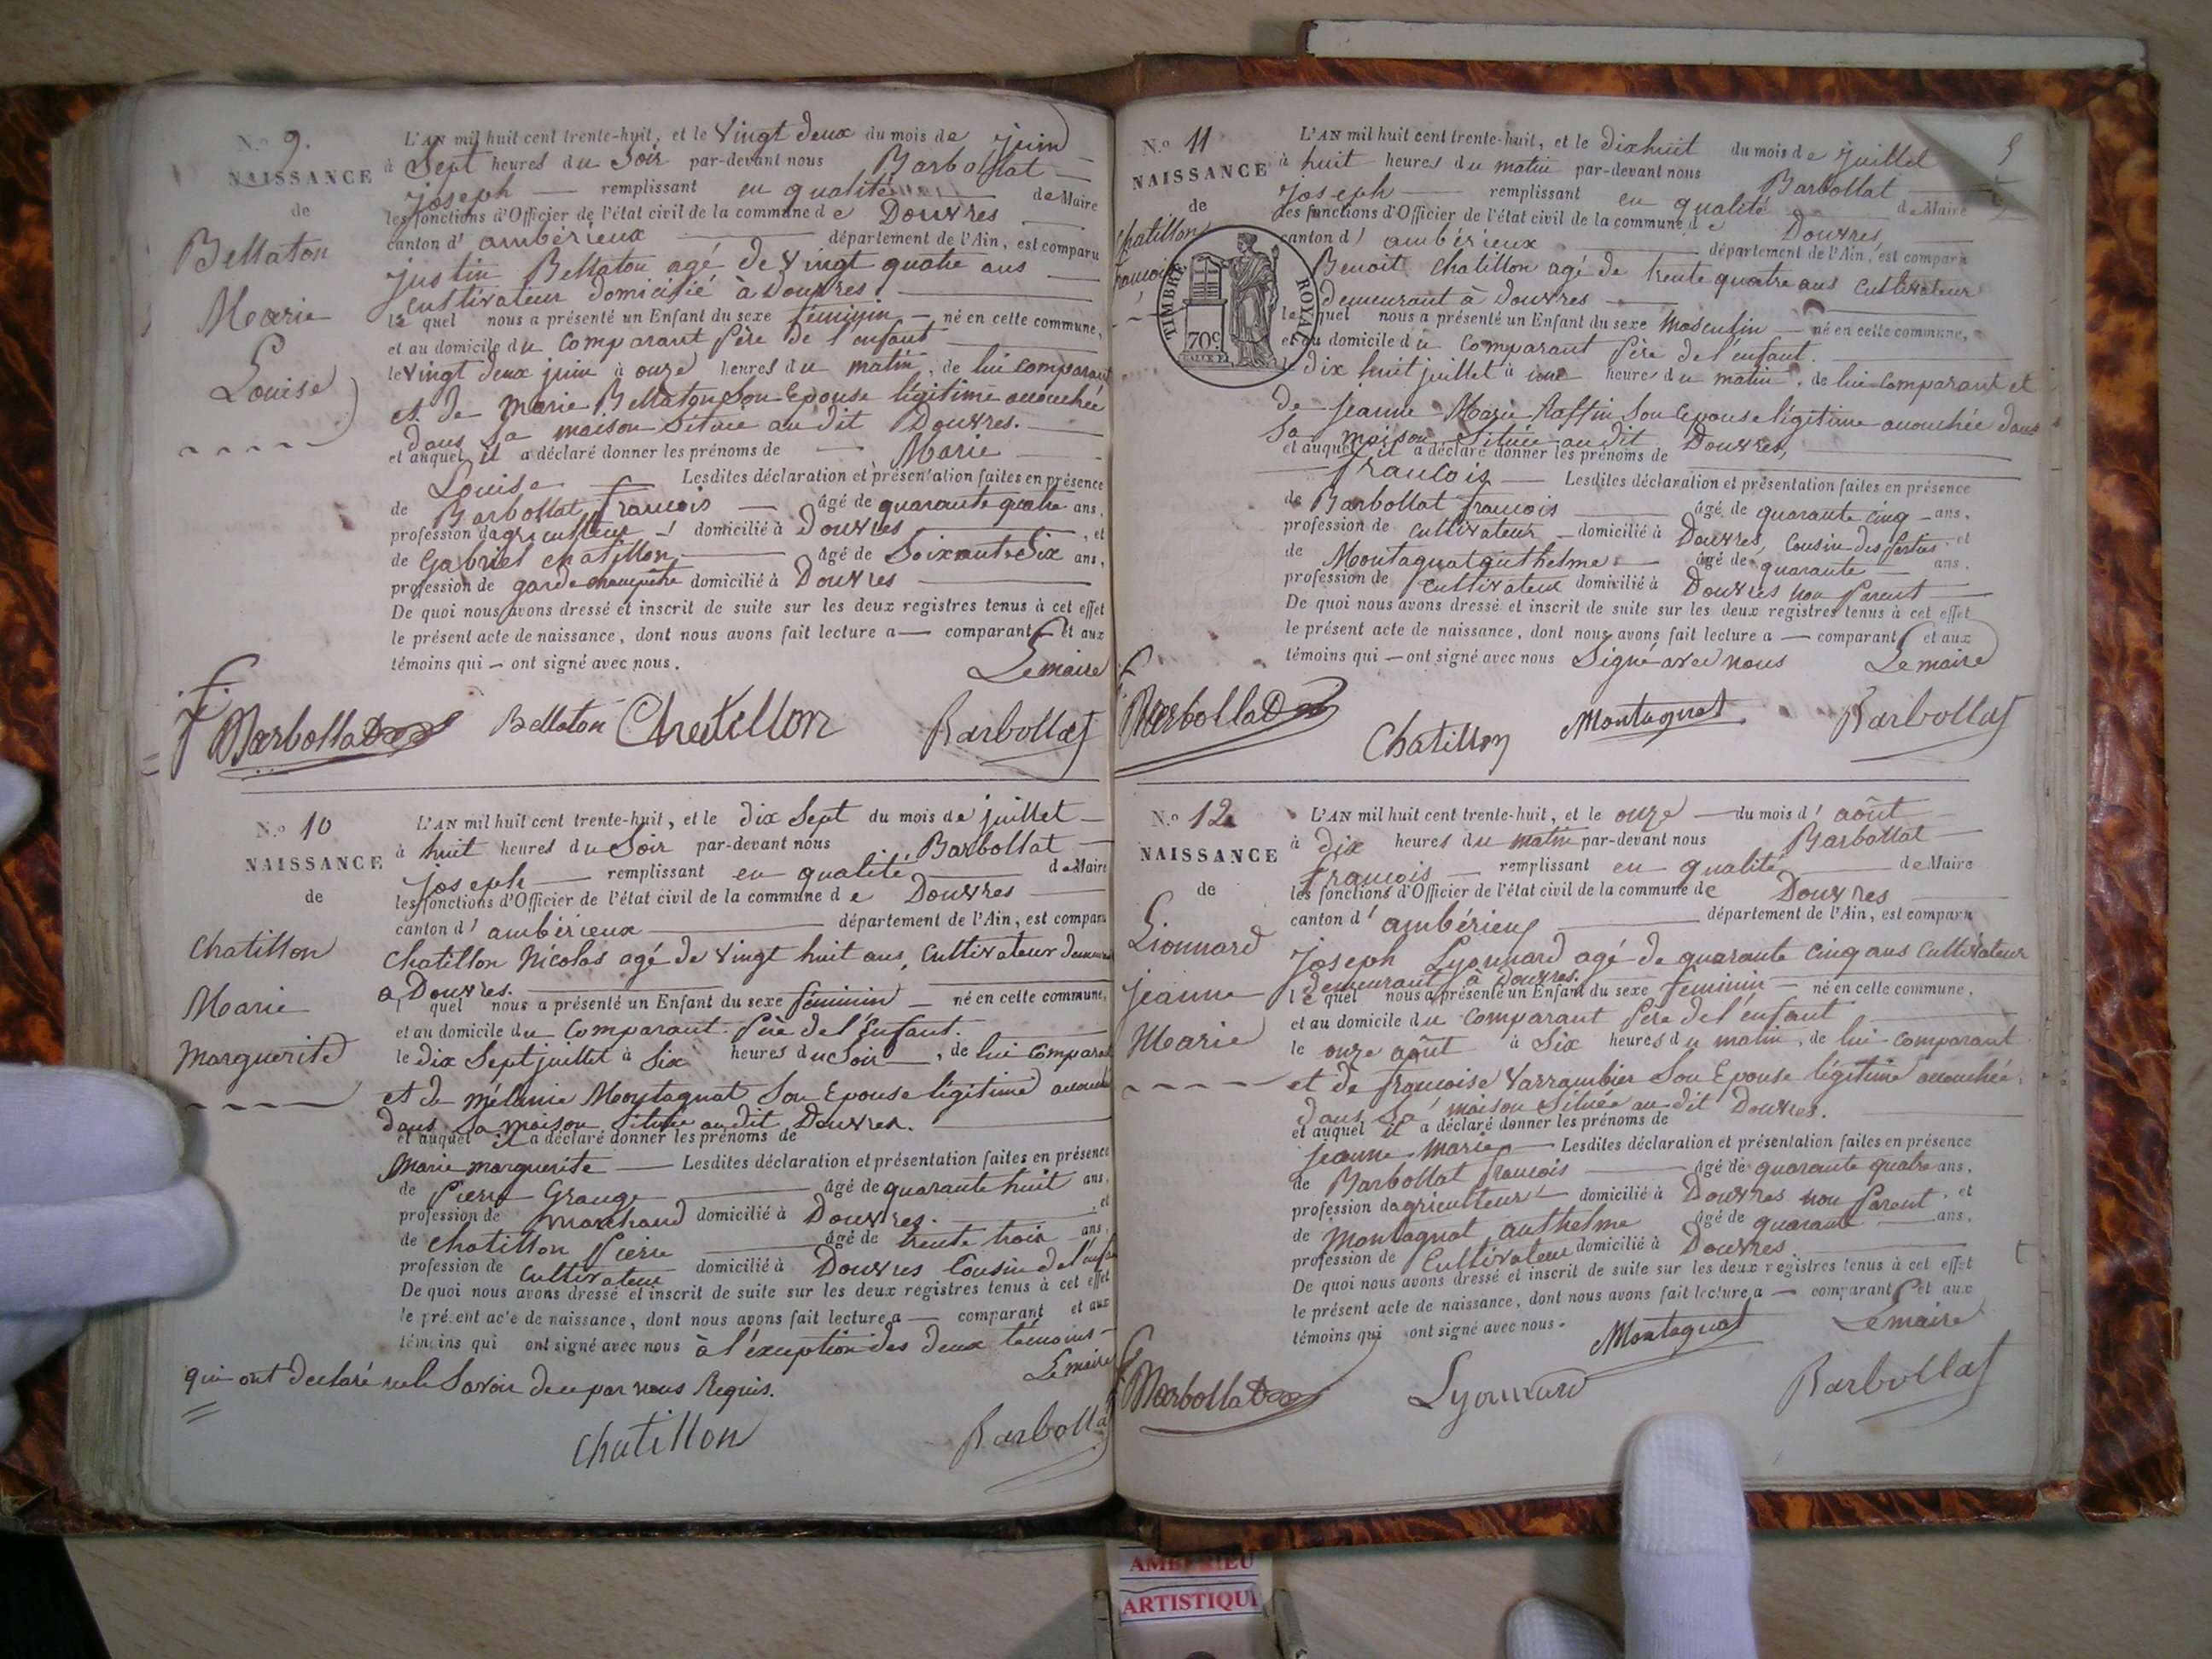 N.º 9.
NAISSANCE
de
Bellaton
Marie
Louise
L'AN mil huit cent trente-huit, et le Vingt deux du mois de juin
à Sept heures du Soir par-devant nous Barbollat
joseph remplissant en qualité de Maire
les fonctions d'Officier de l'état civil de la commune de Douvres
canton d' ambérieux département de l'Ain, est comparu
justin Bellaton agé de Vingt quatre ans
cultivateur domicilié à Douvres.
le quel nous a présenté un Enfant du sexe féminin né en cette commune,
et au domicile du Comparant père de l'enfant
le Vingt deux juin à onze heures du matin, de lui comparant
et de Marie Bellaton Son Epouse légitime accouchée
dans Sa maison Située au dit Douvres.
et auquel il a déclaré donner les prénoms de Marie
Louise Lesdites déclaration et présentation faites en présence
de Barbollat francois âgé de quarante quatre ans,
profession dagriculteur domicilié à Douvres, et
de Gabriel chatillon âgé de Soixante Six ans,
profession de garde champêtre domicilié à Douvres
De quoi nous avons dressé et inscrit de suite sur les deux registres tenus à cet effet
le présent acte de naissance, dont nous avons fait lecture a comparant et aux
témoins qui ont signé avec nous.
Le maire
f. Barbollat Bellaton Chatillon Barbollat
N.º 10
NAISSANCE
de
Chatillon
Marie
Marguerite
L'AN mil huit cent trente-huit, et le dix Sept du mois de juillet
à huit heures du Soir par-devant nous Barbollat
joseph remplissant en qualité de Maire
les fonctions d'Officier de l'état civil de la commune de Douvres
canton d' ambérieux département de l'Ain, est comparu
Chatillon Nicolas agé de Vingt huit ans, Cultivateur
a Douvres.
l quel nous a présenté un Enfant du sexe féminin né en cette commune,
et au domicile du Comparant père de l'Enfant.
le dix Sept juillet à Six heures du Soir, de lui
et de mélanie Montagnat Son Epouse légitime
dans Sa maison Située au dit Douvres.
et auquel il a déclaré donner les prénoms de
Marie marguerite Lesdites déclaration et présentation faites en présence
de Pierre Grange âgé de quarante huit ans,
profession de marchand domicilié à Douvres. et
de Chatillon Pierre âgé de trente trois ans,
profession de Cultivateur domicilié à Douvres Cousin de
De quoi nous avons dressé et inscrit de suite sur les deux registres tenus à cet effet
le présent acte de naissance, dont nous avons fait lecture a comparant et aux
témoins qui ont signé avec nous à l'exception des deux témoins
qui ont declaré ne le Savoir de ce par nous Requis.
Le maire
Chatillon Barbollat
N.º 11
NAISSANCE
de
Chatillon
francois
TIMBRE ROYAL
70 c
5
L'AN mil huit cent trente-huit, et le dix huit du mois de juillet
à huit heures du matin par-devant nous Barbollat
joseph remplissant en qualité de Maire
les fonctions d'Officier de l'état civil de la commune de Douvres
canton d' ambérieux département de l'Ain, est comparu
Benoit Chatillon agé de trente quatre ans Cultivateur
demeurant à Douvres
le quel nous a présenté un Enfant du sexe Masculin né en cette commune,
et au domicile du Comparant père de l'enfant.
dix huit juillet à une heure du matin, de lui comparant et
de jeanne Marie Raffin Son Epouse légitime accouchée dans
Sa maison Située au dit Douvres,
et auquel il a déclaré donner les prénoms de
francois Lesdites déclaration et présentation faites en présence
de Barbollat francois âgé de quarante cinq ans,
profession de cultivateur domicilié à Douvres, Cousin des parties et
de Montagnat anthelme âgé de quarante ans,
profession de Cultivateur domicilié à Douvres non parent
De quoi nous avons dressé et inscrit de suite sur les deux registres tenus à cet effet
le présent acte de naissance, dont nous avons fait lecture a comparant et aux
témoins qui ont signé avec nous Signé avec nous
Le maire
Barbollat Chatillon Montagnat Barbollat
N.º 12
NAISSANCE
de
Lionnard
jeanne
Marie
L'AN mil huit cent trente-huit, et le onze du mois d' août
à dix heures du matin par-devant nous Barbollat
francois remplissant en qualité de Maire
les fonctions d'Officier de l'état civil de la commune de Douvres
canton d' ambérieux département de l'Ain, est comparu
joseph Lyonnard agé de quarante Cinq ans Cultivateur
demeurant à Douvres.
le quel nous a présenté un Enfant du sexe féminin né en cette commune,
et au domicile du Comparant père de l'enfant
le onze août à Six heures du matin, de lui comparant
et de francoise Varrambier Son Epouse légitime accouchée
dans Sa maison Située au dit Douvres.
et auquel il a déclaré donner les prénoms de
jeanne Marie Lesdites déclaration et présentation faites en présence
de Barbollat francois âgé de quarante quatre ans,
profession dagriculteur domicilié à Douvres non parent, et
de Montagnat anthelme âgé de quarante ans,
profession de Cultivateur domicilié à Douvres
De quoi nous avons dressé et inscrit de suite sur les deux registres tenus à cet effet
le présent acte de naissance, dont nous avons fait lecture a comparant et aux
témoins qui ont signé avec nous.
Le maire
Barbollat Lyonnard Montagnat Barbollat
AMBERIEU
ARTISTIQU